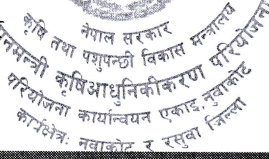 नेपाल सरकार
कृषि तथा पशुपन्छी विकास मन्त्रालय
कृषि आधुनिकीकरण परियोजना
परियोजना कार्यान्वयन एकाइ, नुवाकोट
कार्यक्षेत्रः नुवाकोट र रसुवा जिल्ला